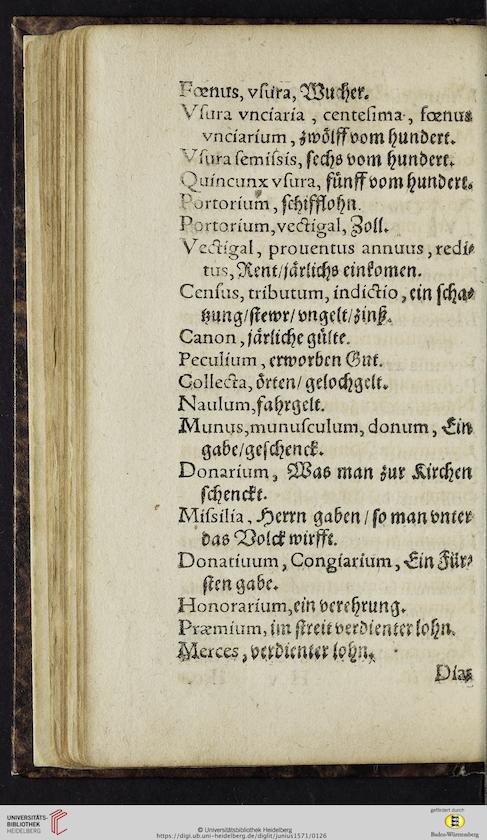 Fœnus, vſura, Wucher.
Vſura vnciaria, centeſima, fœnus
vnciarium, zwölff vom hundert.
Vſura ſemiſsis, ſechs vom hundert.
Quincunx vſura, fünff vom hundert.
Portorium, ſchifflohn.
Portorium, vectigal, Zoll.
Vectigal, prouentus annuus, redi⸗
tus, Rent/järlichs einkomen.
Cenſus, tributum, indictio, ein ſcha⸗
tzung/ſtewr/vngelt/zinß.
Canon, järliche gülte.
Peculium, erworben Gut.
Collecta, örten/gelochgelt.
Naulum, fahrgelt.
Munus, munuſculum, donum, Ein
gabe/geſchenck.
Donarium, Was man zur Kirchen
ſchenckt.
Miſsilia, Herrn gaben/ſo man vnter
das Volck wirfft.
Donatiuum, Congiarium, Ein Für⸗
ſten gabe.
Honorarium, ein verehrung.
Præmium, im ſtreit verdienter lohn.
Merces, verdienter lohn.
Dias
UNIVERSITÄTS-
BIBLIOTHEK
HEIDELBERG
© Universitätsbibliothek Heidelberg
https://digi.ub.uni-heidelberg.de/diglit/junius1571/0126
gefördert durch
Baden-Württemberg